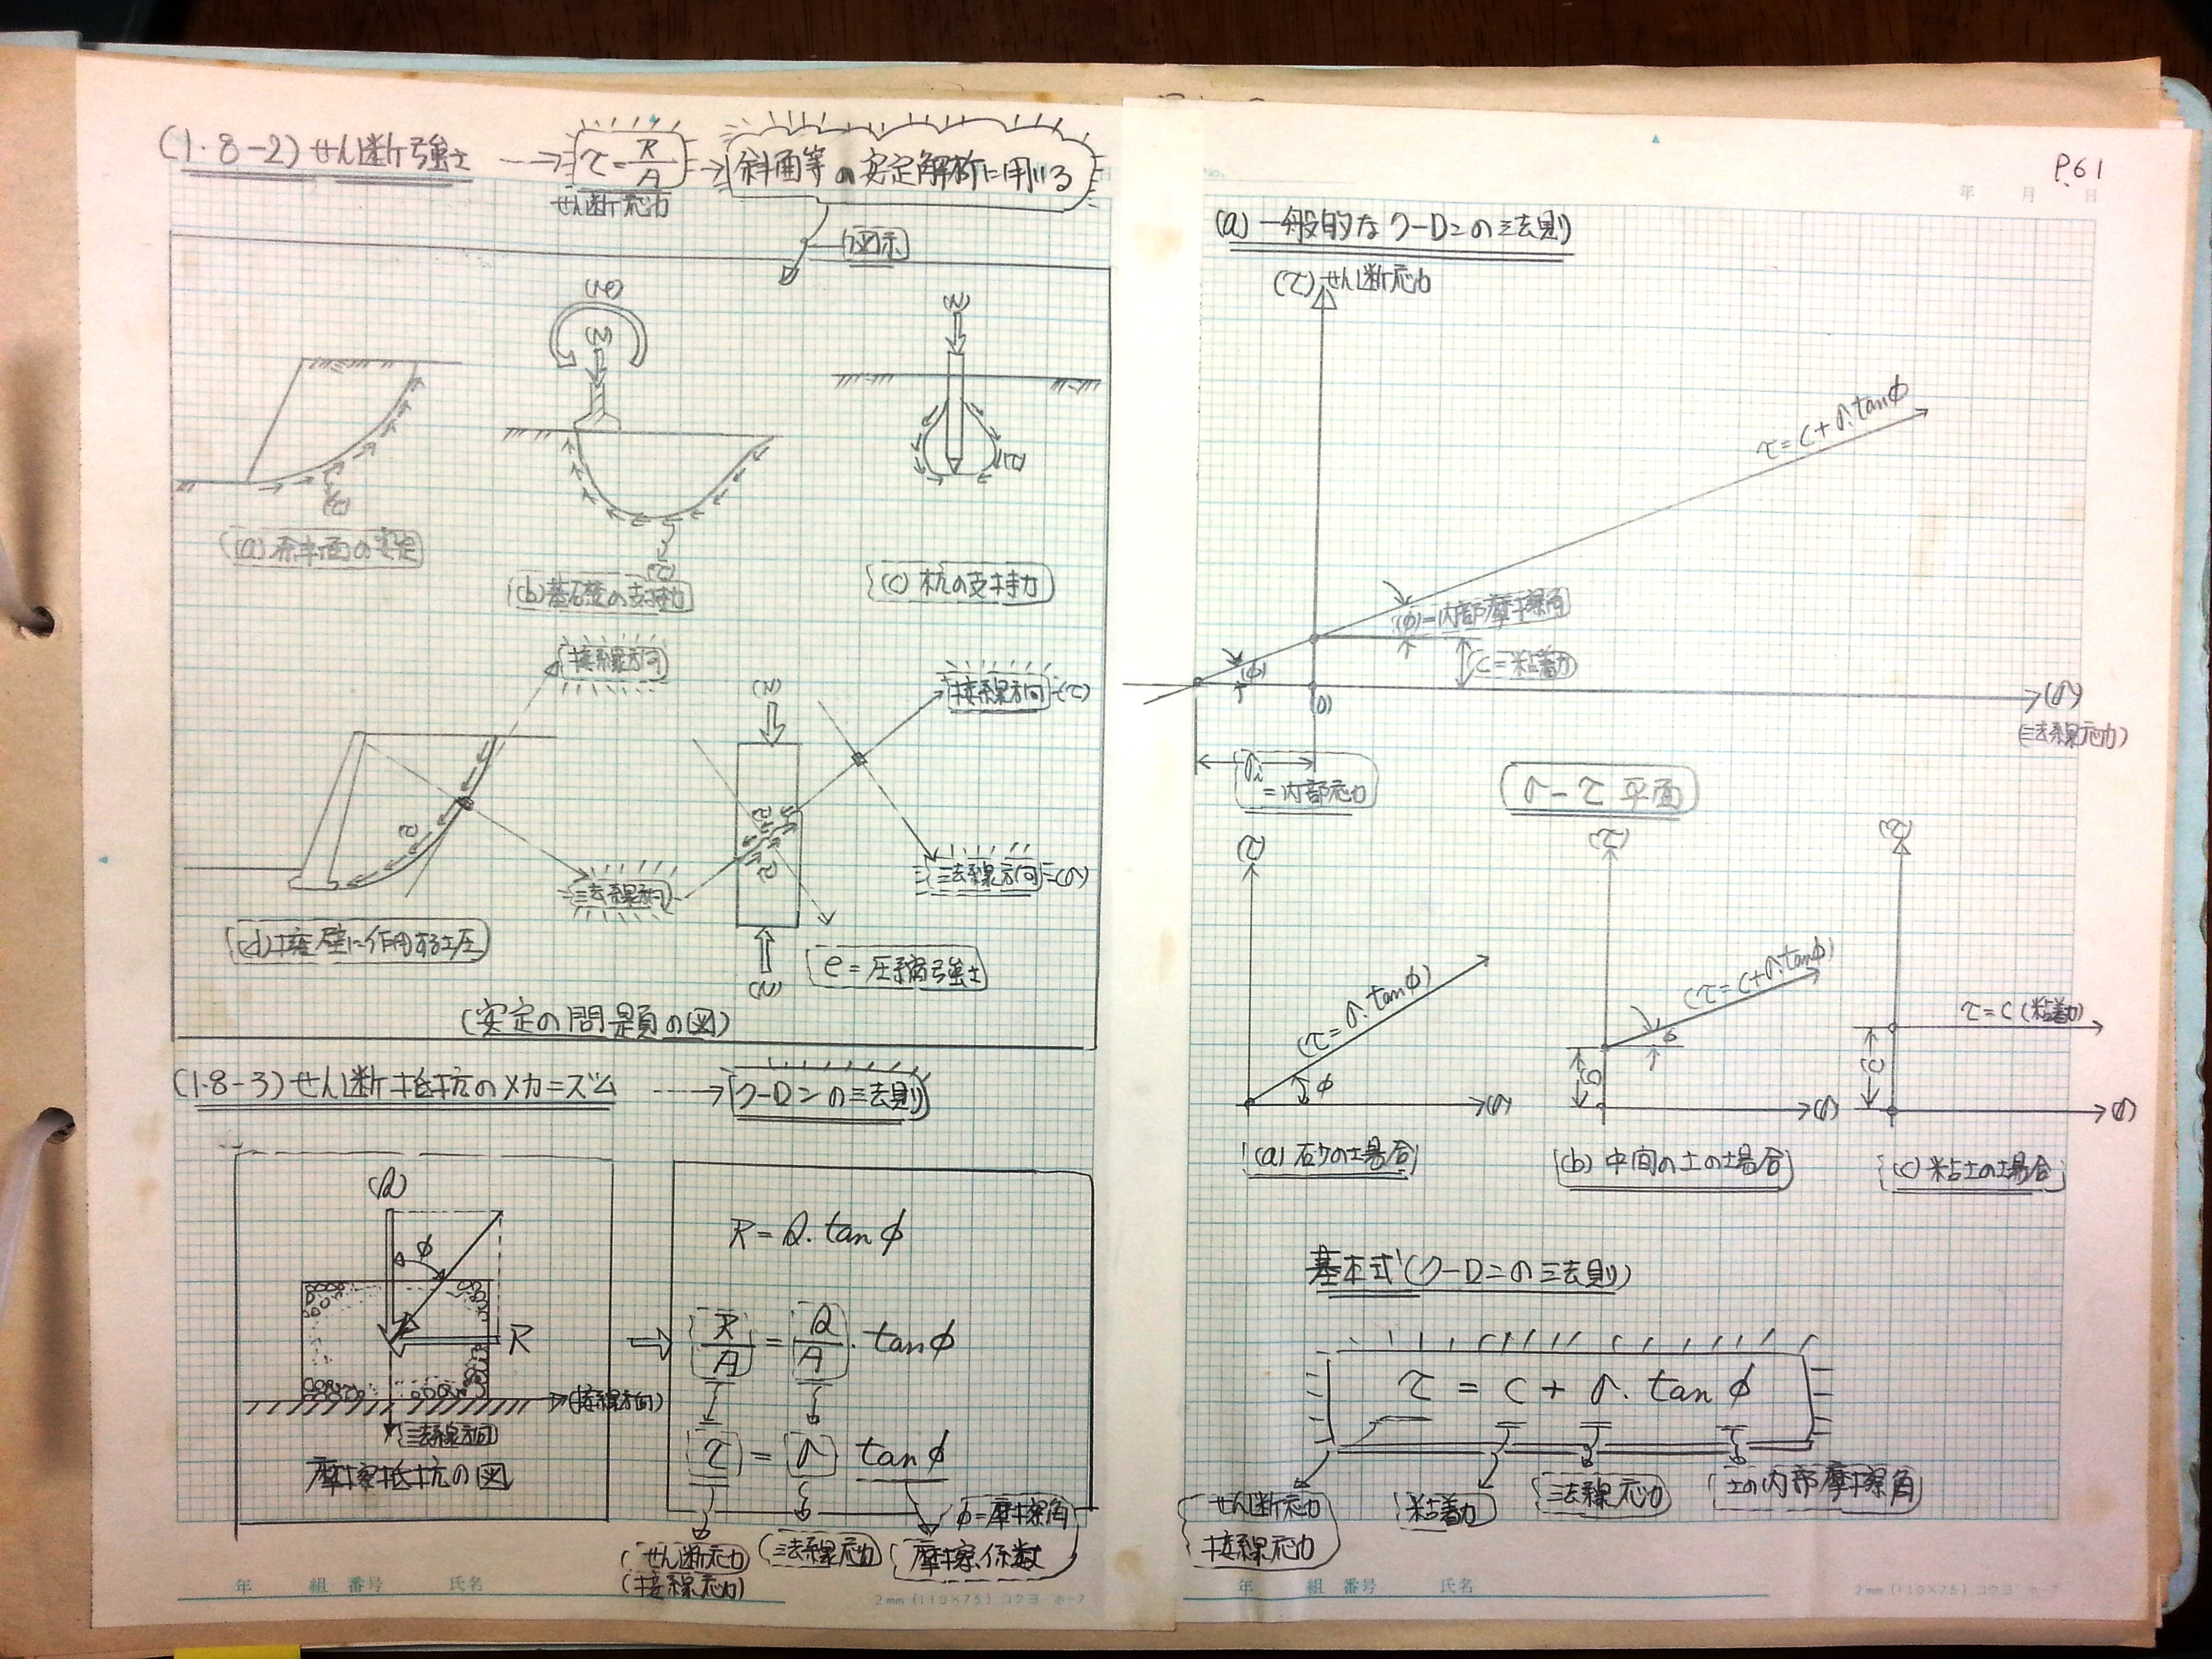 (1・8-2) せん断強士 → τ = R/A → 斜面等の安定解析に用いる
せん断応力
図示
(M)
(N)
(N)
(τ)
(a) 斜面の安定
(τ)
(b) 基礎の支持力
(τ)
(c) 杭の支持力
接線方向
(N)
接線方向=(τ)
τ
法線方向
法線方向=(σ)
(d) 擁壁に作用する土圧
(N)
e = 圧縮強士
(安定の問題の図)
(1・8-3) せん断抵抗のメカニズム → クーロンの法則
(Q)
φ
R
(接線方向)
法線方向
摩擦抵抗の図
R = Q・tanφ
R/A = Q/A・tanφ
τ = σ tanφ
φ=摩擦角
(せん断応力) (法線応力) 摩擦係数
(接線応力)
年 組 番号 氏名
2mm (110×75) コクヨ ホ-7
P.61
No.
年 月 日
(a) 一般的なクーロンの法則
(τ) せん断応力
τ = C + σ・tanφ
(φ)=内部摩擦角
C=粘着力
(φ)
(0)
(σ)
(法線応力)
σi
=内部応力
σ-τ 平面
(τ)
(τ)
(τ)
(τ = σ・tanφ)
(τ = C+σ・tanφ)
τ = C (粘着力)
φ
φ
C
(C)
(σ)
(σ)
(σ)
(a) 砂の場合
(b) 中間の土の場合
(c) 粘土の場合
基本式 (クーロンの法則)
τ = C + σ・tanφ
せん断応力
接線応力
粘着力
法線応力
土の内部摩擦角
年 組 番号 氏名
2mm (110×75) コクヨ ホ-7